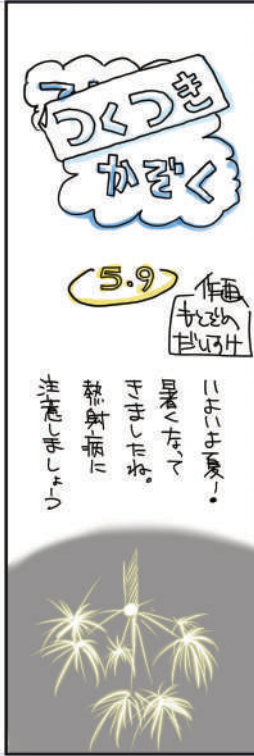 つくつき
かぞく
5.9
作画
もとぞの
だいすけ
いよいよ夏!
暑くなって
きましたね。
熱射病に
注意しましょう